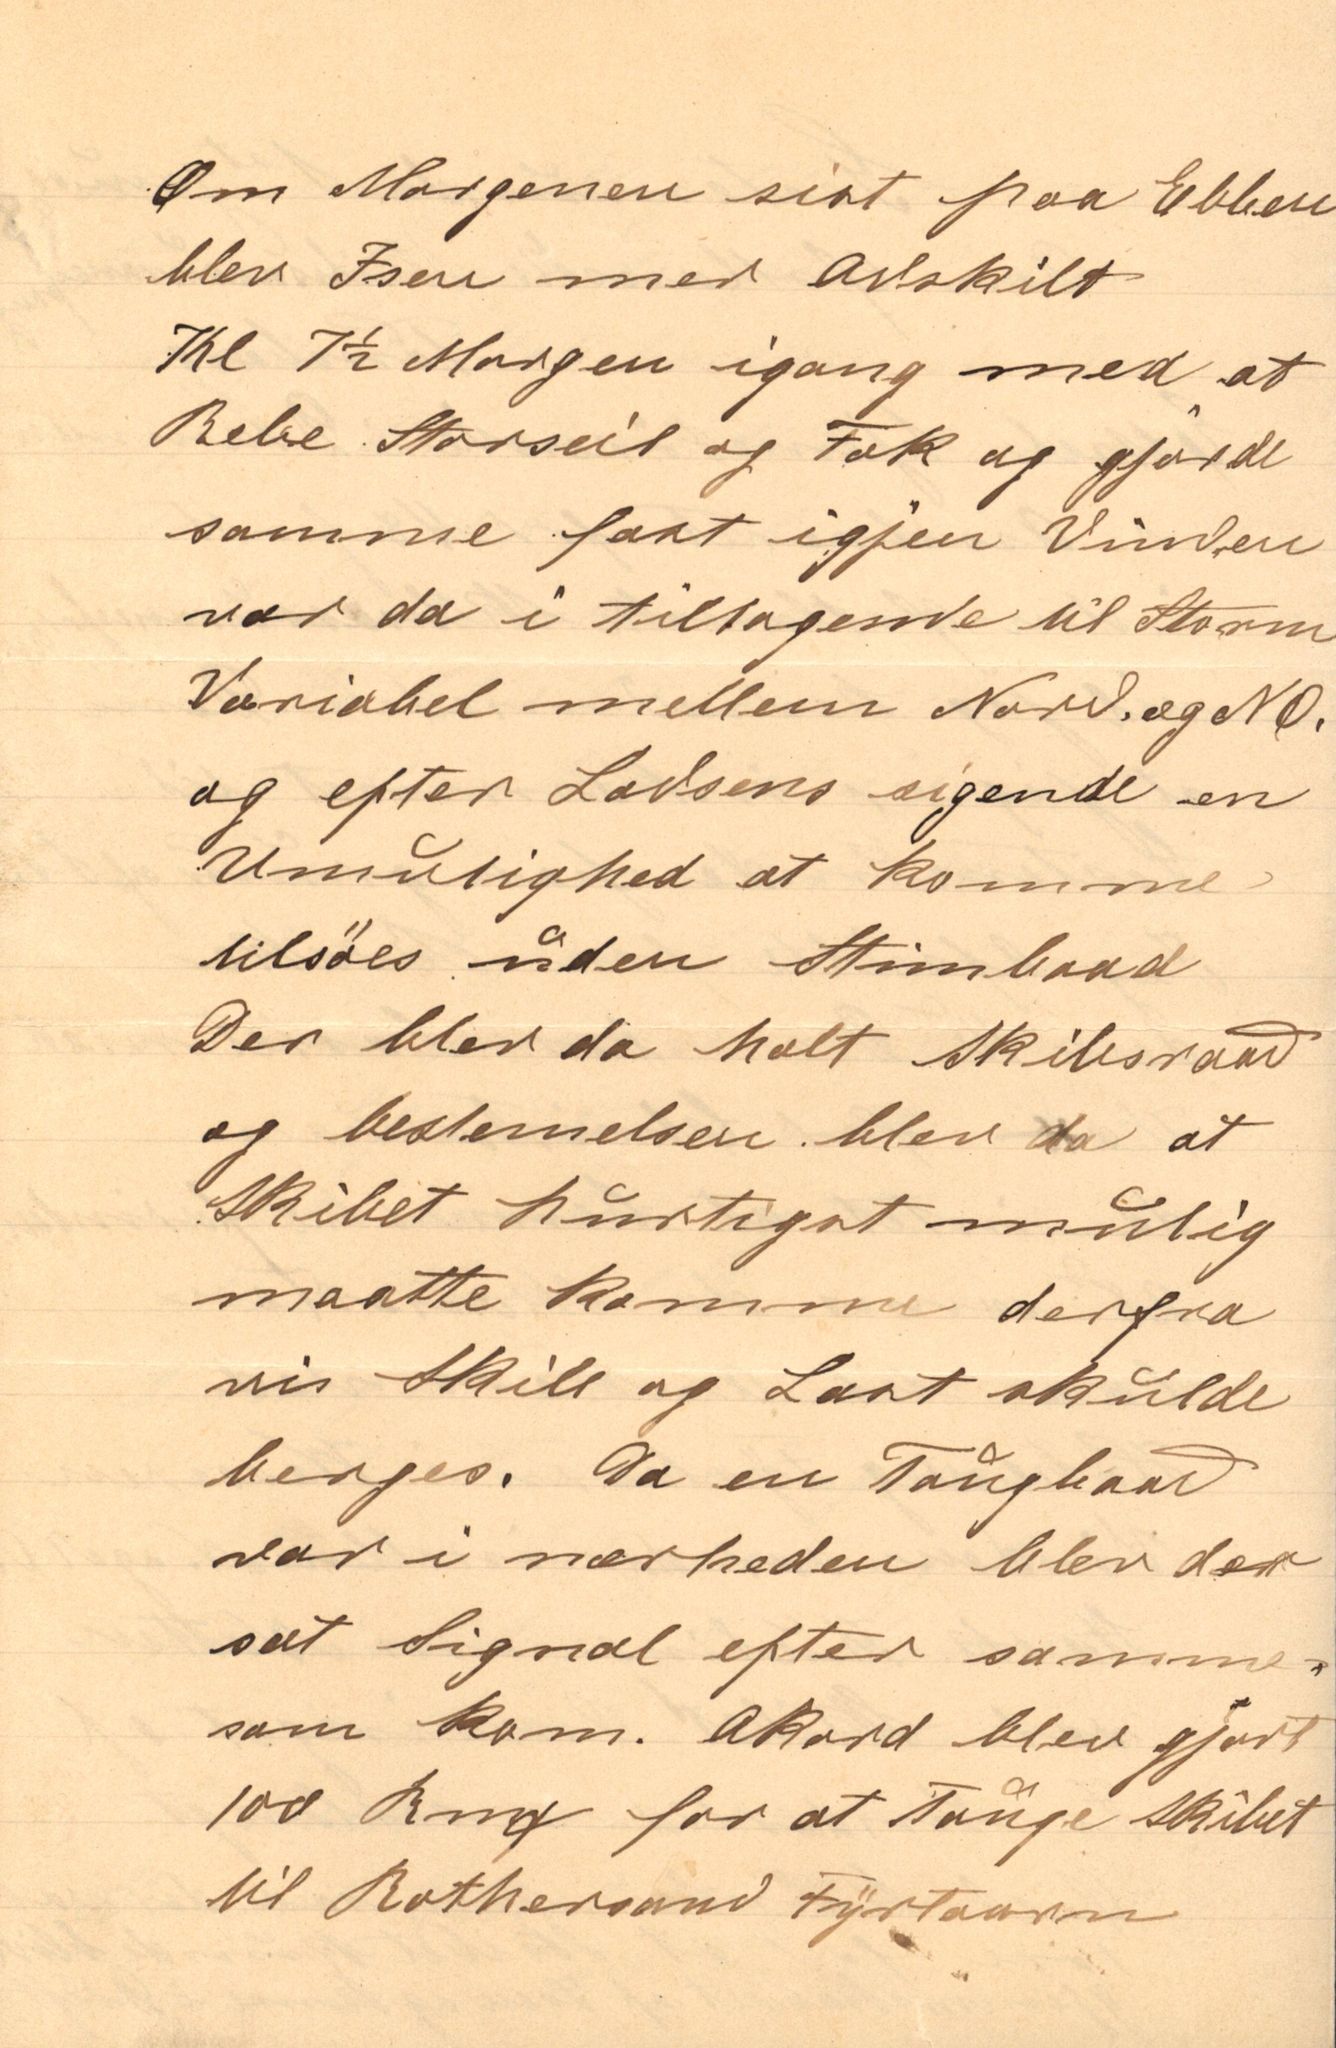 Om Morgenen sist paa Ebben
blev Isen mer Adskilt
Kl 7½ Morgen igang med at
Rebe Storseil og Fok og gjorde
samme fast igjen Vinden
var da i tiltagende til Storm
Variabel mellem Nord. og NO.
og efter Lodsens sigende en
Umulighed at komme
tilsöes uden Stimbaad
Der blev da holt Skibsraad
og bestemelsen blev da at
Skibet hurtigst mulig
maatte komme derfra
vis Skib og Last skulde
berges. Da en Taugbaad
var i nærheden blev der
sat Signal efter samme
som kom. Akord blev gjort
100 Rm for at Tauge Skibet
til Rothersand Fyrtaarn